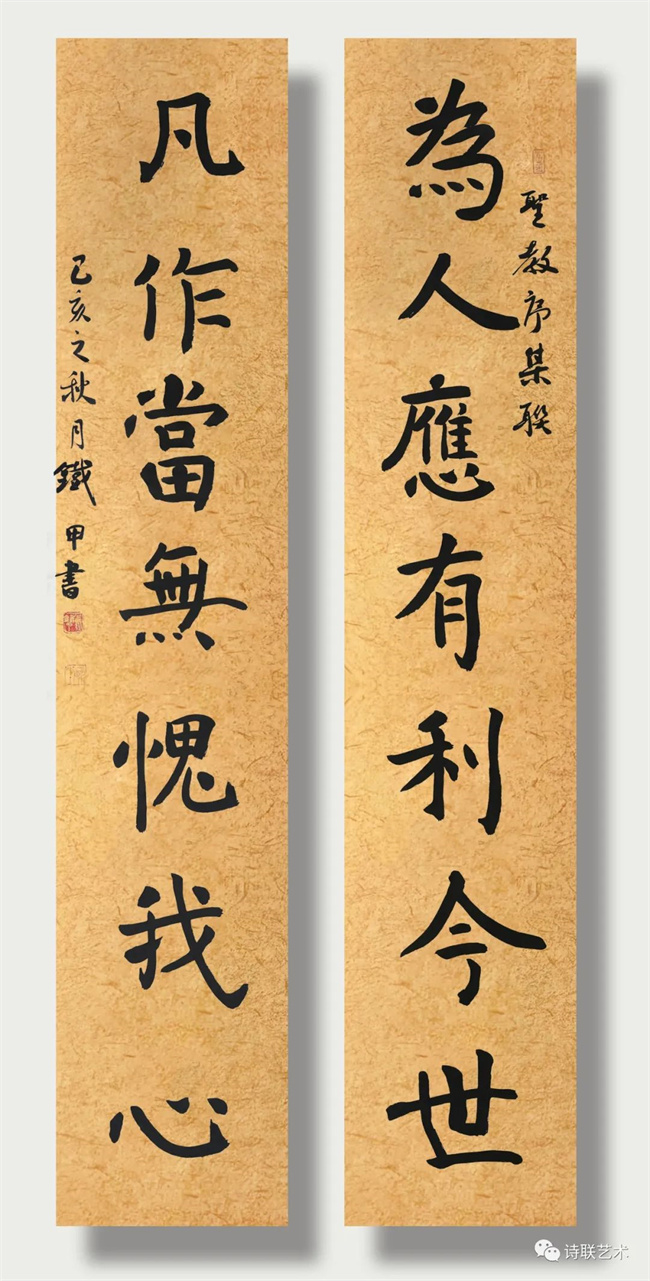 為人應有利今世
聖教序集联
凡作當無愧我心
己亥之秋月鐵甲書
诗联艺术